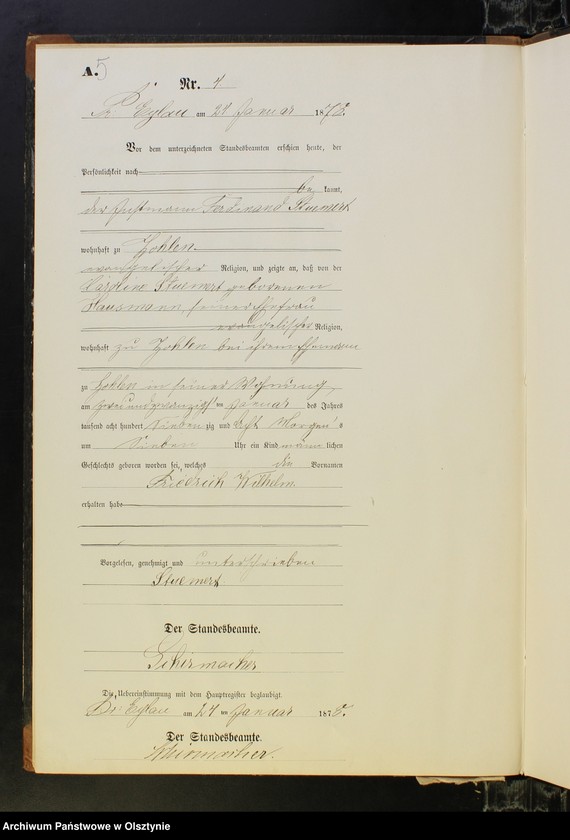 A. 5
Nr. 7
Pr. Eylau am 24 Januar 1878.
Vor dem unterzeichneten Standesbeamten erschien heute, der
Persönlichkeit nach
be kannt,
der Instmann Ferdinand Stuemert
wohnhaft zu Zohlen
evangelischer Religion, und zeigte an, daß von der
Karoline Stuemert geborenen
Hausmann, seiner Ehefrau
evangelischer Religion,
wohnhaft zu Zohlen bei ihrem Ehemann
zu Zohlen in seiner Wohnung
am zwei und zwanzigsten Januar des Jahres
tausend acht hundert sieben zig und acht Morgens
um sieben Uhr ein Kind männlichen
Geschlechts geboren worden sei, welches die Vornamen
Friedrich Wilhelm
erhalten habe
Vorgelesen, genehmigt und unterschrieben
Stuemert
Der Standesbeamte.
Schirmacher
Die Uebereinstimmung mit dem Hauptregister beglaubigt.
Pr. Eylau am 24 ten Januar 1878.
Der Standesbeamte.
Schirmacher.
Archiwum Państwowe w Olsztynie